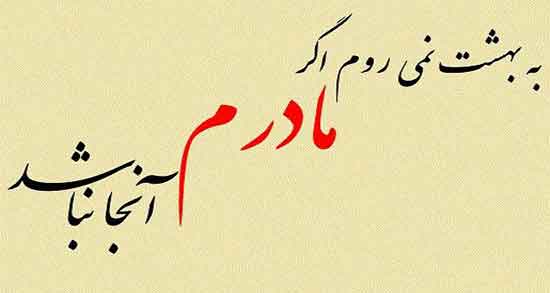 به بهشت نمی روم اگر
مادرم
آنجا نباشد